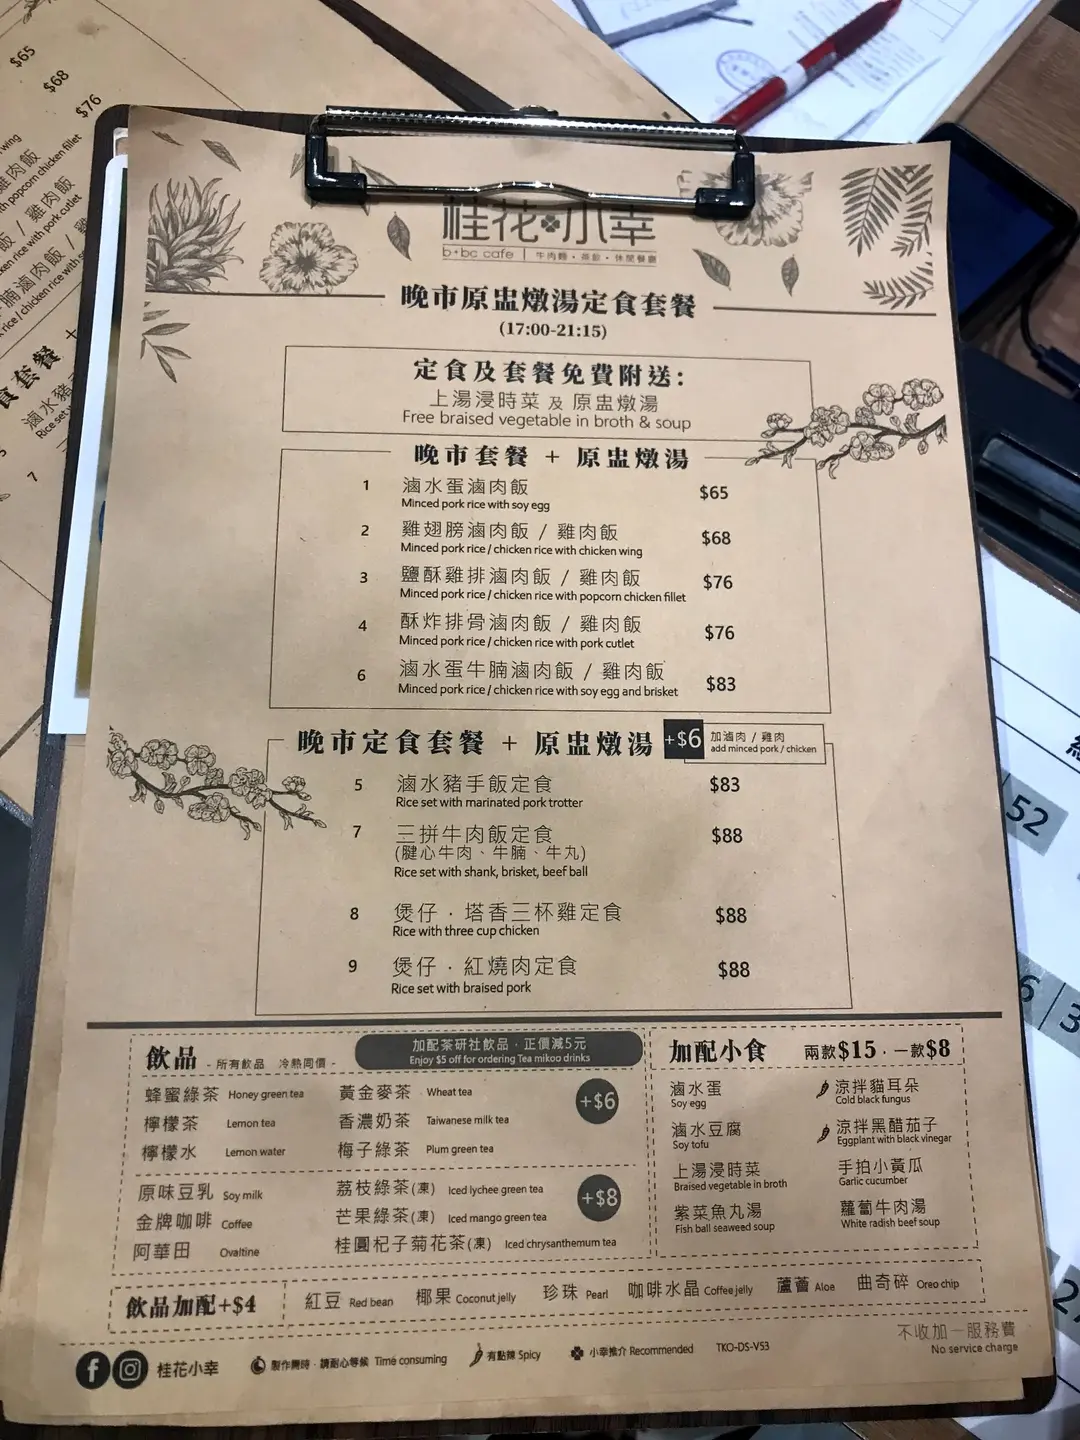 $65
$68
$76
桂花小幸
b+bc cafe | 牛肉麵・茶飲・休閒餐廳
晚市原盅燉湯定食套餐
(17:00-21:15)
定食及套餐免費附送:
上湯浸時菜 及 原盅燉湯
Free braised vegetable in broth & soup
晚市套餐 + 原盅燉湯
1 滷水蛋滷肉飯 $65
Minced pork rice with soy egg
2 雞翅膀滷肉飯 / 雞肉飯 $68
Minced pork rice / chicken rice with chicken wing
3 鹽酥雞排滷肉飯 / 雞肉飯 $76
Minced pork rice / chicken rice with popcorn chicken fillet
4 酥炸排骨滷肉飯 / 雞肉飯 $76
Minced pork rice / chicken rice with pork cutlet
6 滷水蛋牛腩滷肉飯 / 雞肉飯 $83
Minced pork rice / chicken rice with soy egg and brisket
晚市定食套餐 + 原盅燉湯 +$6 加滷肉 / 雞肉
add minced pork / chicken
5 滷水豬手飯定食 $83
Rice set with marinated pork trotter
7 三拼牛肉飯定食 $88
(腱心牛肉、牛腩、牛丸)
Rice set with shank, brisket, beef ball
8 煲仔．塔香三杯雞定食 $88
Rice with three cup chicken
9 煲仔．紅燒肉定食 $88
Rice set with braised pork
飲品 - 所有飲品 冷熱同價 -
加配茶研社飲品．正價減5元
Enjoy $5 off for ordering Tea mikoo drinks
蜂蜜綠茶 Honey green tea 黃金麥茶 Wheat tea
檸檬茶 Lemon tea 香濃奶茶 Taiwanese milk tea
檸檬水 Lemon water 梅子綠茶 Plum green tea
+$6
原味豆乳 Soy milk 荔枝綠茶(凍) Iced lychee green tea
金牌咖啡 Coffee 芒果綠茶(凍) Iced mango green tea
阿華田 Ovaltine 桂圓杞子菊花茶(凍) Iced chrysanthemum tea
+$8
加配小食 兩款$15．一款$8
滷水蛋 涼拌貓耳朵
Soy egg Cold black fungus
滷水豆腐 涼拌黑醋茄子
Soy tofu Eggplant with black vinegar
上湯浸時菜 手拍小黃瓜
Braised vegetable in broth Garlic cucumber
紫菜魚丸湯 蘿蔔牛肉湯
Fish ball seaweed soup White radish beef soup
飲品加配+$4 紅豆 Red bean 椰果 Coconut jelly 珍珠 Pearl 咖啡水晶 Coffee jelly 蘆薈 Aloe 曲奇碎 Oreo chip
不收加一服務費
No service charge
桂花小幸 製作需時．請耐心等候 Time consuming 有點辣 Spicy 小幸推介 Recommended TKO-DS-V53
52